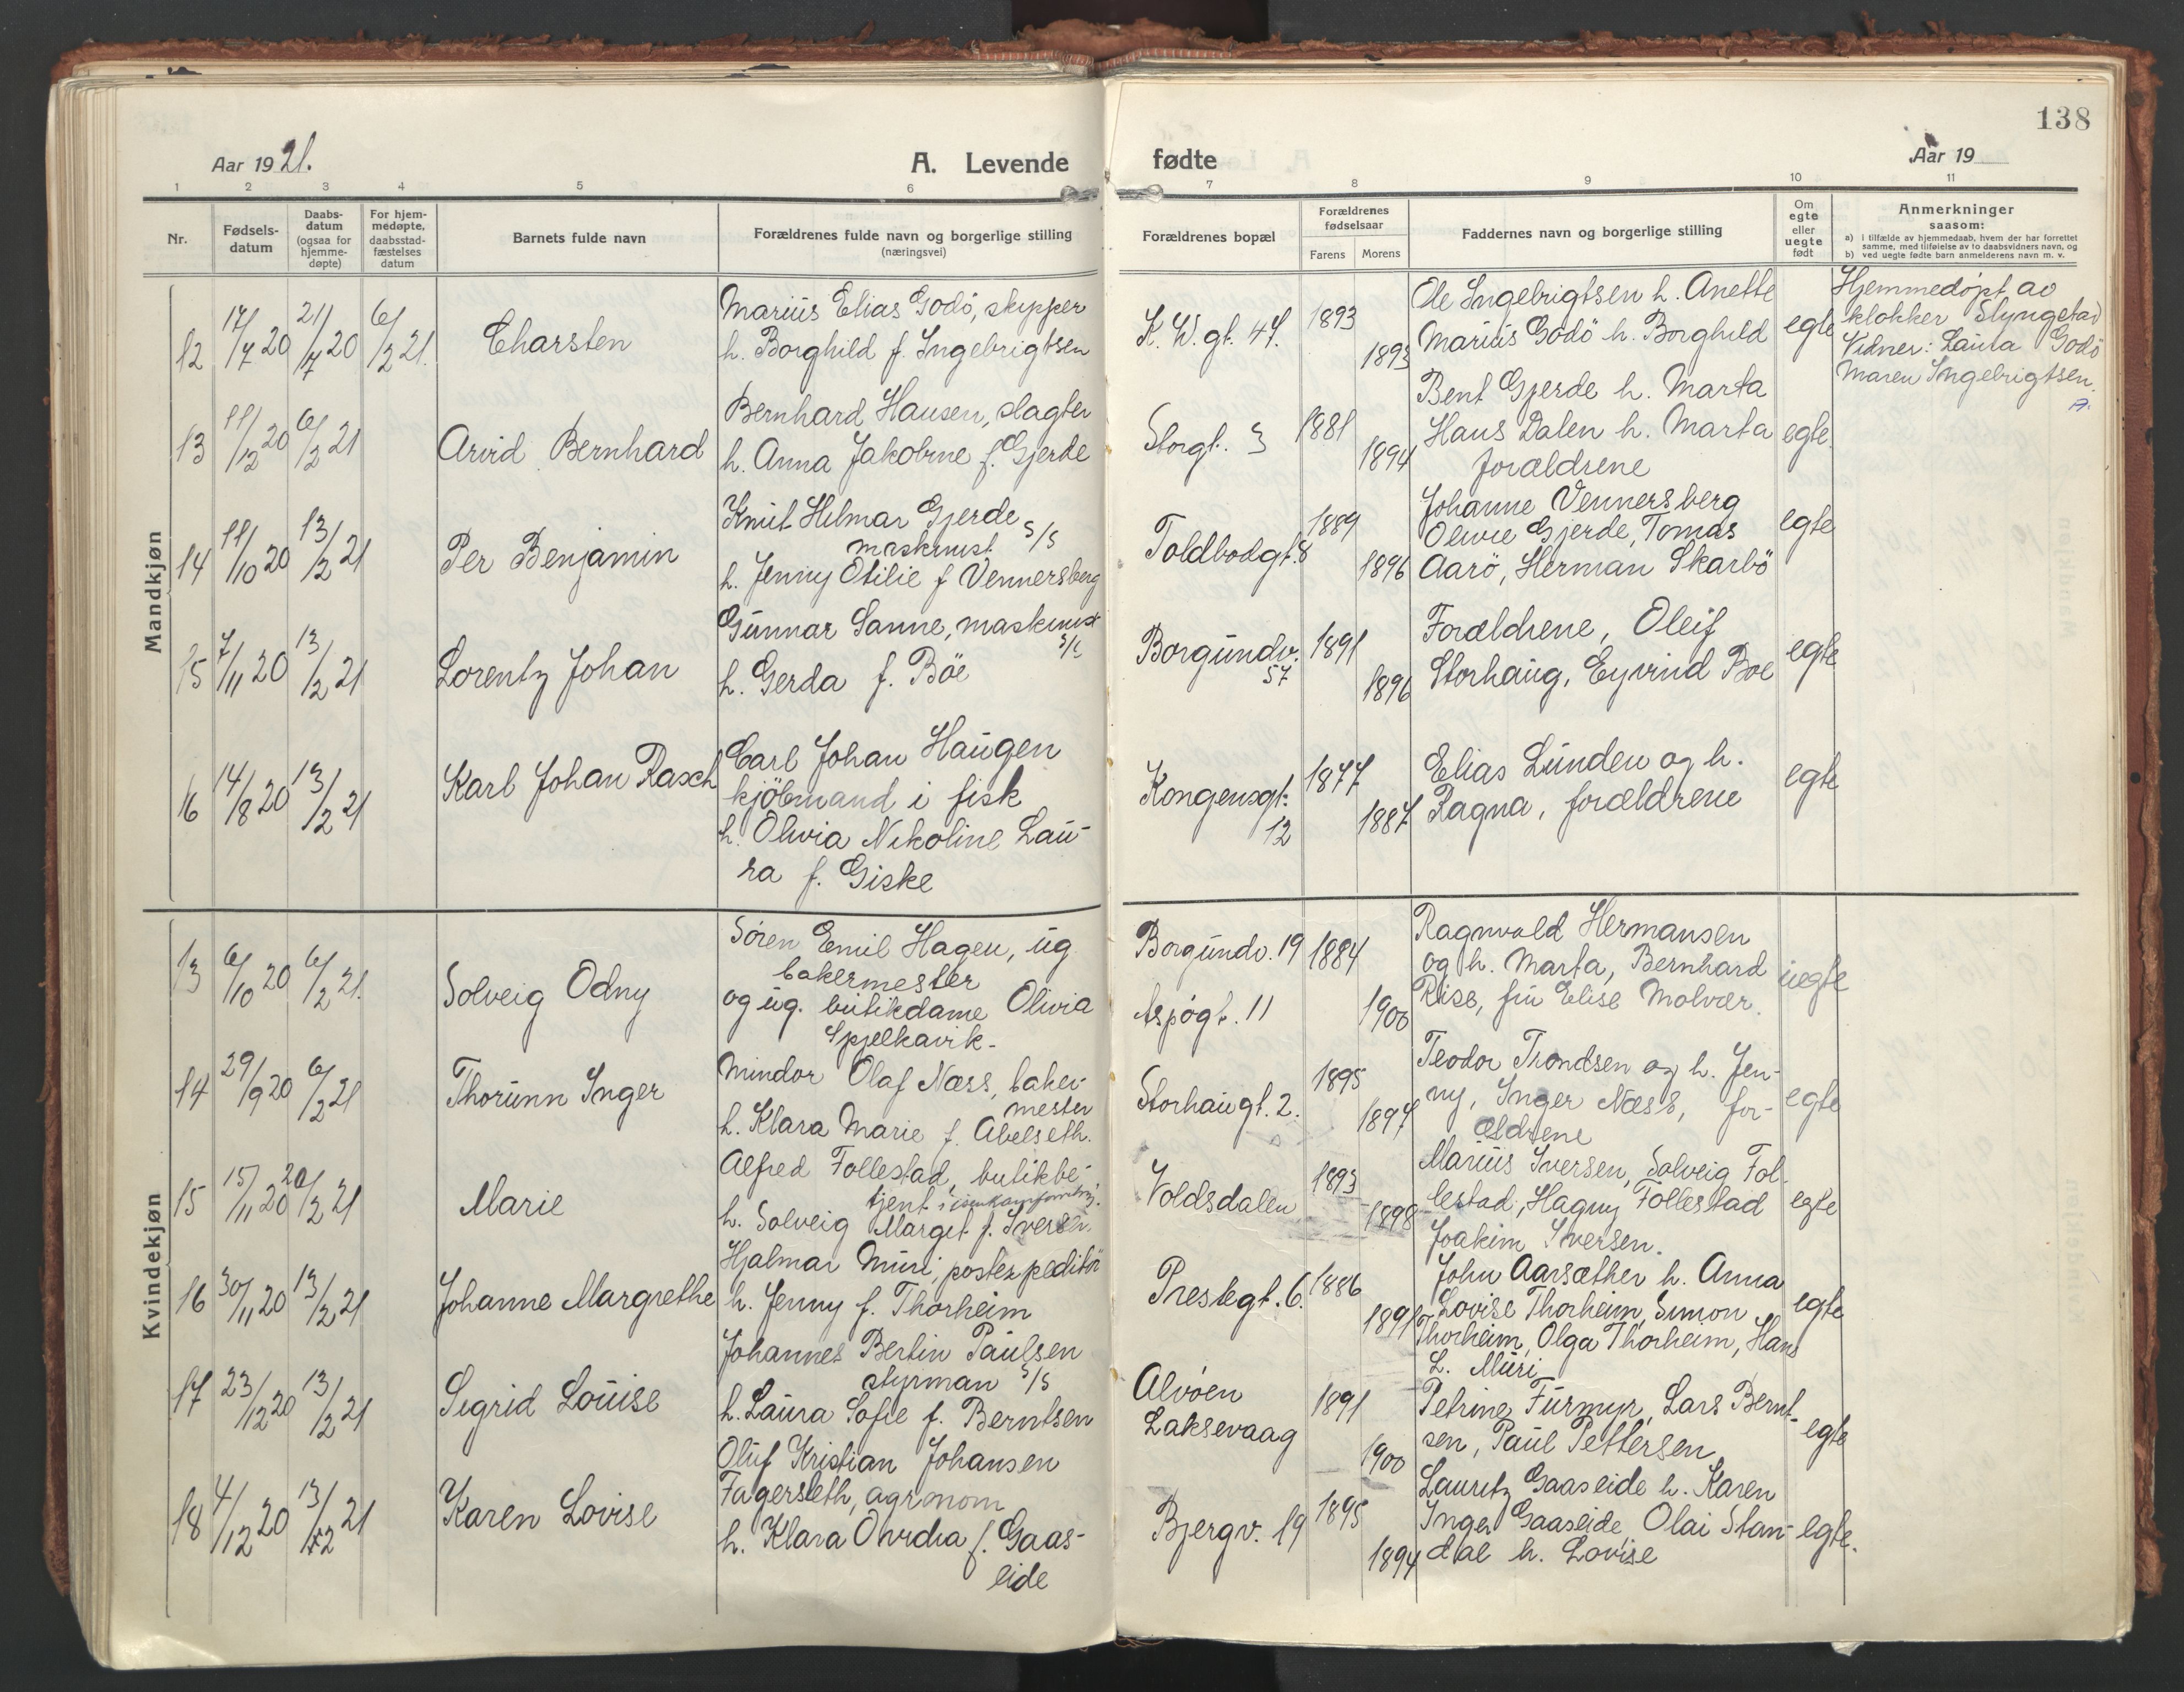 138
Aar 1921.
A. Levende fødte
Aar 19
1 2 3 4 5 6 7 8 9 10 11
Nr.
Fødselsdatum
Daabsdatum (ogsaa for hjemmedøpte)
For hjemmedøpte, daabsstadfæstelses datum
Barnets fulde navn
Forældrenes fulde navn og borgerlige stilling
(næringsvei)
Forældrenes bopæl
Forældrenes fødselsaar
Farens Morens
Faddernes navn og borgerlige stilling
Om egte eller uegte født
Anmerkninger
saasom:
a) i tilfælde av hjemmedaab, hvem der har forrettet
samme, med tilføielse av to daabsvidners navn, og
b) ved uegte fødte barn anmelderens navn m. v.
Mandkjøn
12 17/7 20 21/7 20 6/2 21. Charsten
Marius Elias Godö, skipper
h. Borghild f. Ingebrigtsen
K. W. gt. 47. 1893 1893
Ole Ingebrigtsen h. Anette
Marius Godö h. Borghild
egte
Hjemmedöpt av
klokker Slyngstad
Vidner: Laura Godö
Maren Ingebrigtsen.
13 11/12 20 6/2 21 Arvid Bernhard
Bernhard Hansen, slagter
h. Anna Jakobine f. Gjerde
Storgt. 3 1881 1894
Bent Gjerde h. Marta
Hans Dalen h. Marta
forældrene
egte.
14 11/10 20 13/2 21 Per Benjamin
Knut Hilmar Gjerde
maskinist S/S
h. Jenny Otilie f Vennersberg
Toldbodgt. 8 1889 1896
Johanne Vennersberg
Olivie Gjerde, Tomas
Aarö, Herman Skarbö
egte
15 7/11 20 13/2 21 Lorentz Johan
Gunnar Sanne, maskinist
S/S
h. Gerda f. Böe
Borgundv. 57 1891 1896
Forældrene, Oleif
Storhaug, Eyvind Boe
egte
16 14/8 20 13/2 21 Karl Johan Rasch
Carl Johan Haugen
kjöbmand i fisk
h. Olivia Nikoline Lau-
ra f. Giske
Kongensgt. 12 1877 1887
Elias Lunden og h.
Ragna, forældrene
egte
Kvindekjøn
13 6/10 20 6/2 21. Solveig Odny
Sören Emil Hagen, ug
bakermester
og ug. butikdame Olivia
Spjelkavik-
Borgundv. 19 1884
Aspögt. 11 1900
Ragnvald Hermansen
og h. Marta, Bernhard
Rise, frü Elise Molvær.
uegte
14 29/9 20 6/2 21 Thorunn Inger
Mindor Olaf Næss, baker-
mester
h. Klara Marie f. Abelseth.
Storhaugt. 2. 1895 1897
Teodor Trondsen og h. Jen-
ny, Inger Næss, for-
ældrene
egte
15 15/11 20 20/2 21 Marie
Alfred Follestad, butikbe-
tjent i
h. Solveig Marget f. Iversen.
Voldsdalen 1893 1898
Marius Iversen, Solveig Fol-
lestad, Hagny Follestad
Joakim Iversen.
egte
16 30/11 20 13/2 21 Johanne Margrethe
Hjalmar Muri, postexpeditör
h. Jenny f. Thorheim
Prestegt. 6. 1886 1891
John Aarsæther h. Anna
Lovise Thorheim, Simon
Thorheim, Olga Thorheim, Hans
L. Muri
egte
17 23/12 20 13/2 21 Sigrid Louise
Johannes Bertin Paulsen
styrman S/S
h. Laura Sofie f. Berntsen
Alvöen
Laksevaag
1891 1900
Petrine Furmyr, Lars Bernt-
sen, Paul Pettersen
egte
18 4/12 20 13/2 21 Karen Lovise
Oluf Kristian Johansen
Fagerseth, agronom
h. Klara Ovidia f. Gaas-
eide
Bjergv. 19 1895 1894
Lauritz Gaaseide h. Karen
Inger Gaaseide, Olai Stan-
dal h. Lovise
egte.